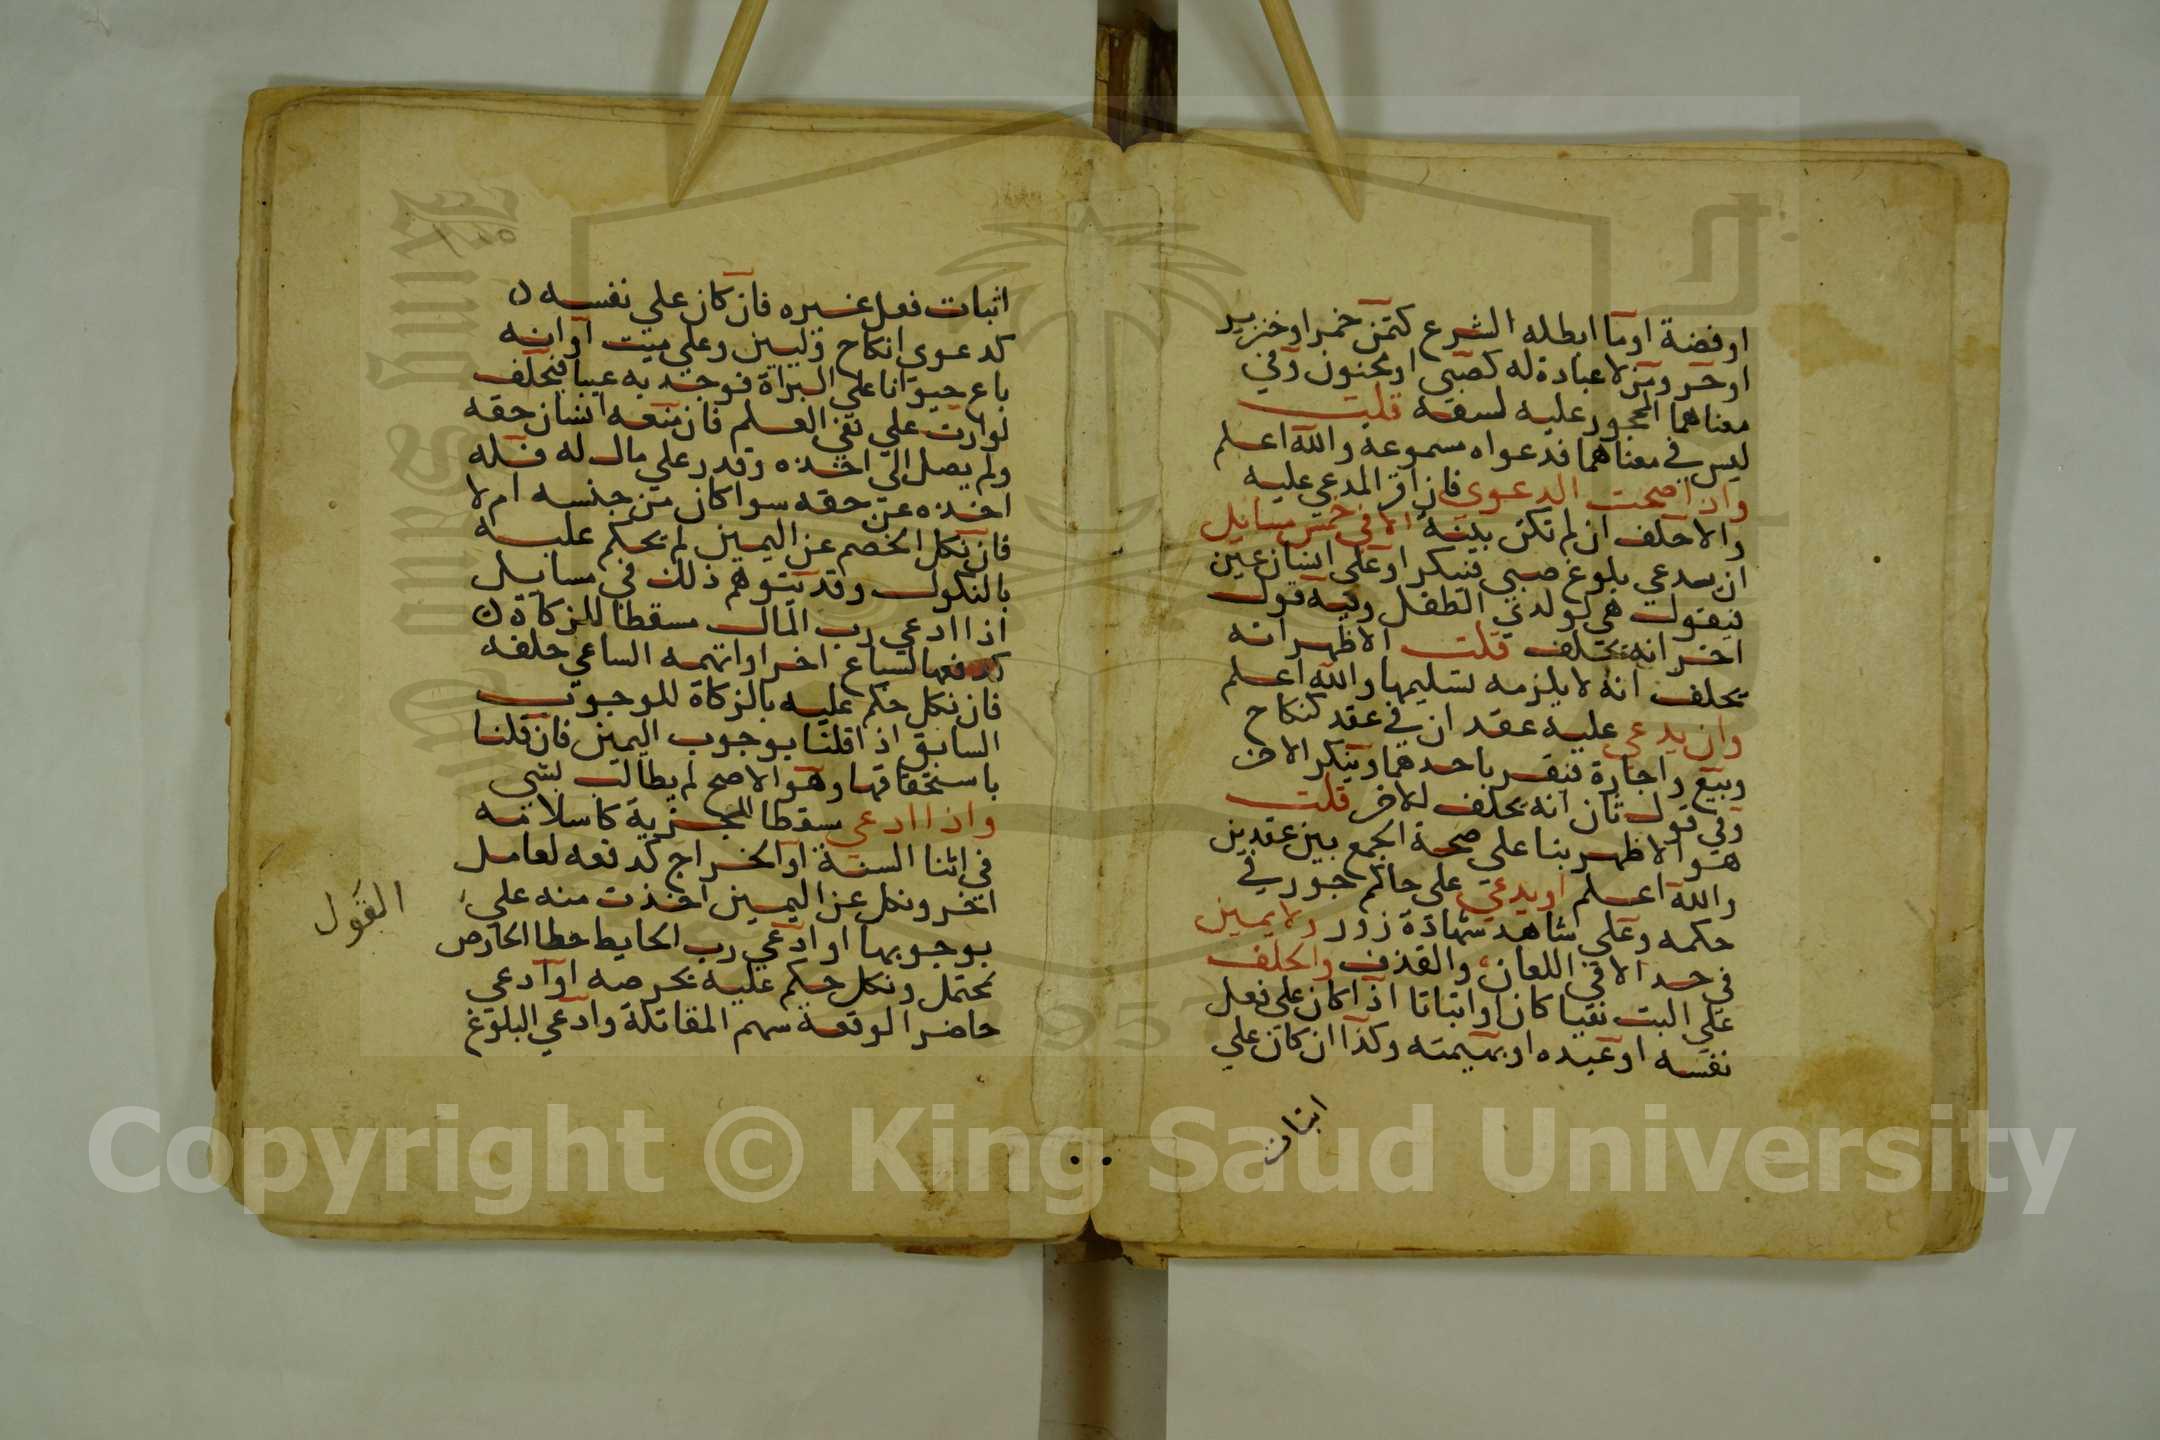 او فضة او ما ابطله الشرع كثمن خمر او خنزير
او حر ومن لا عبادة له كصبي او مجنون وفي
معناهما المحجور عليه لسفه قلت
ليس في معناهما فدعواه مسموعة والله اعلم
واذا صحت الدعوي فان اقر المدعي عليه
والا حلف ان لم تكن بينة الا في خمس مسايل
ان يدعي بلوغ صبي فينكر او علي انسان عين
فيقول هي لولدي الطفل وفيه قول
اخر انه يحلف قلت الاظهر انه
يحلف انه لا يلزمه تسليمها والله اعلم
وان يدعي عليه عقد ان في عقد كنكاح
وبيع واجارة فيقر باحدهما وينكر الاخر
وفي قول ثان انه يحلف للاخر قلت
هو الاظهر بنا علي صحة الجمع بين عقدين
والله اعلم او يدعي علي حاكم جور في
حكمه وعلي شاهد شهادة زور ولا يمين
في حد الا في اللعان والقذف والحلف
علي البت نفيا كان او اثباتا اذا كان علي فعل
نفسه او عبده او بهيمته وكذا ان كان علي
اثبات
اثبات فعل غيره فان كان علي نفسه
كدعوي انكاح وليين وعلي ميت او انه
باع حيوانا علي البراة فوجد به عيبا فيحلف
لوارث علي نفي العلم فان منعه انسان حقه
ولم يصل الي اخذه وقدر علي مال له فله
اخذه عن حقه سوا كان من جنسه ام لا
فان نكل الخصم عن اليمين لم يحكم عليه
بالنكول وقد يتوهم ذلك في مسايل
اذا ادعي رب المال مسقطا للزكاة
كدفعها لساع اخر او اتهمه الساعي حلفه
فان نكل حكم عليه بالزكاة للوجوب
السابق اذا قلنا بوجوب اليمين فان قلنا
باستحقاقها وهو الاصح لم يطالب بشي
واذا ادعي مسقطا للجزية كاسلامه
في اثنا السنة او الخراج كدفعه لعامل
اخر ونكل عن اليمين اخذت منه علي
بوجوبها او ادعي رب الحايط خطا الخارص
بمحتمل ونكل حكم عليه بخرصه او ادعي
حاضر الوقعة سهم المقاتلة وادعي البلوغ
القول